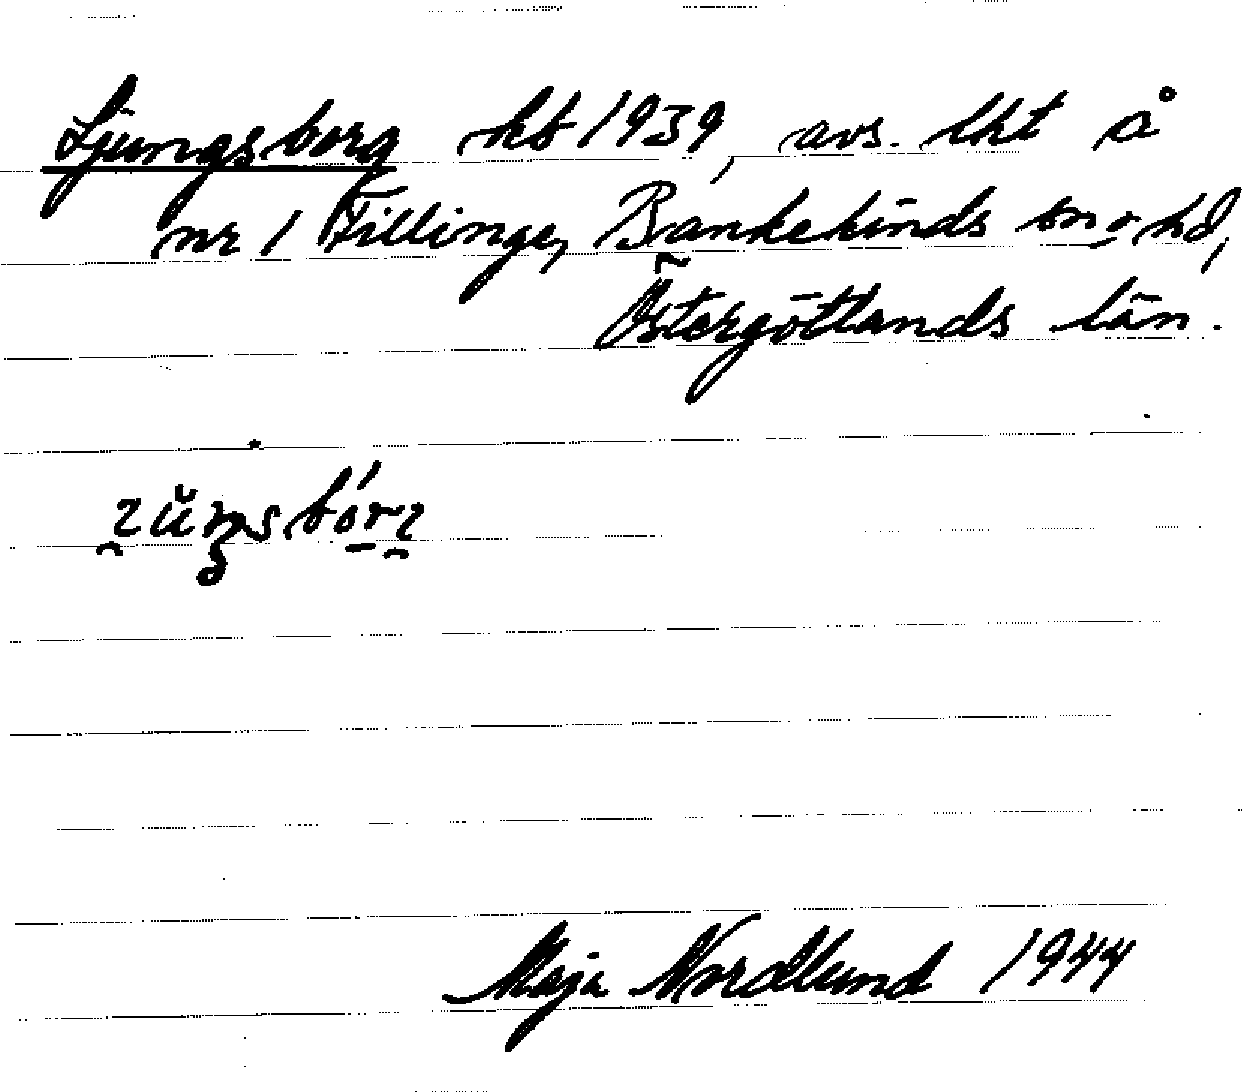 Ljungsborg kb 1939, avs. lht å
nr 1 Fillinge, Bankekinds sn o hd,
Östergötlands län.
Maja Nordlund 1944